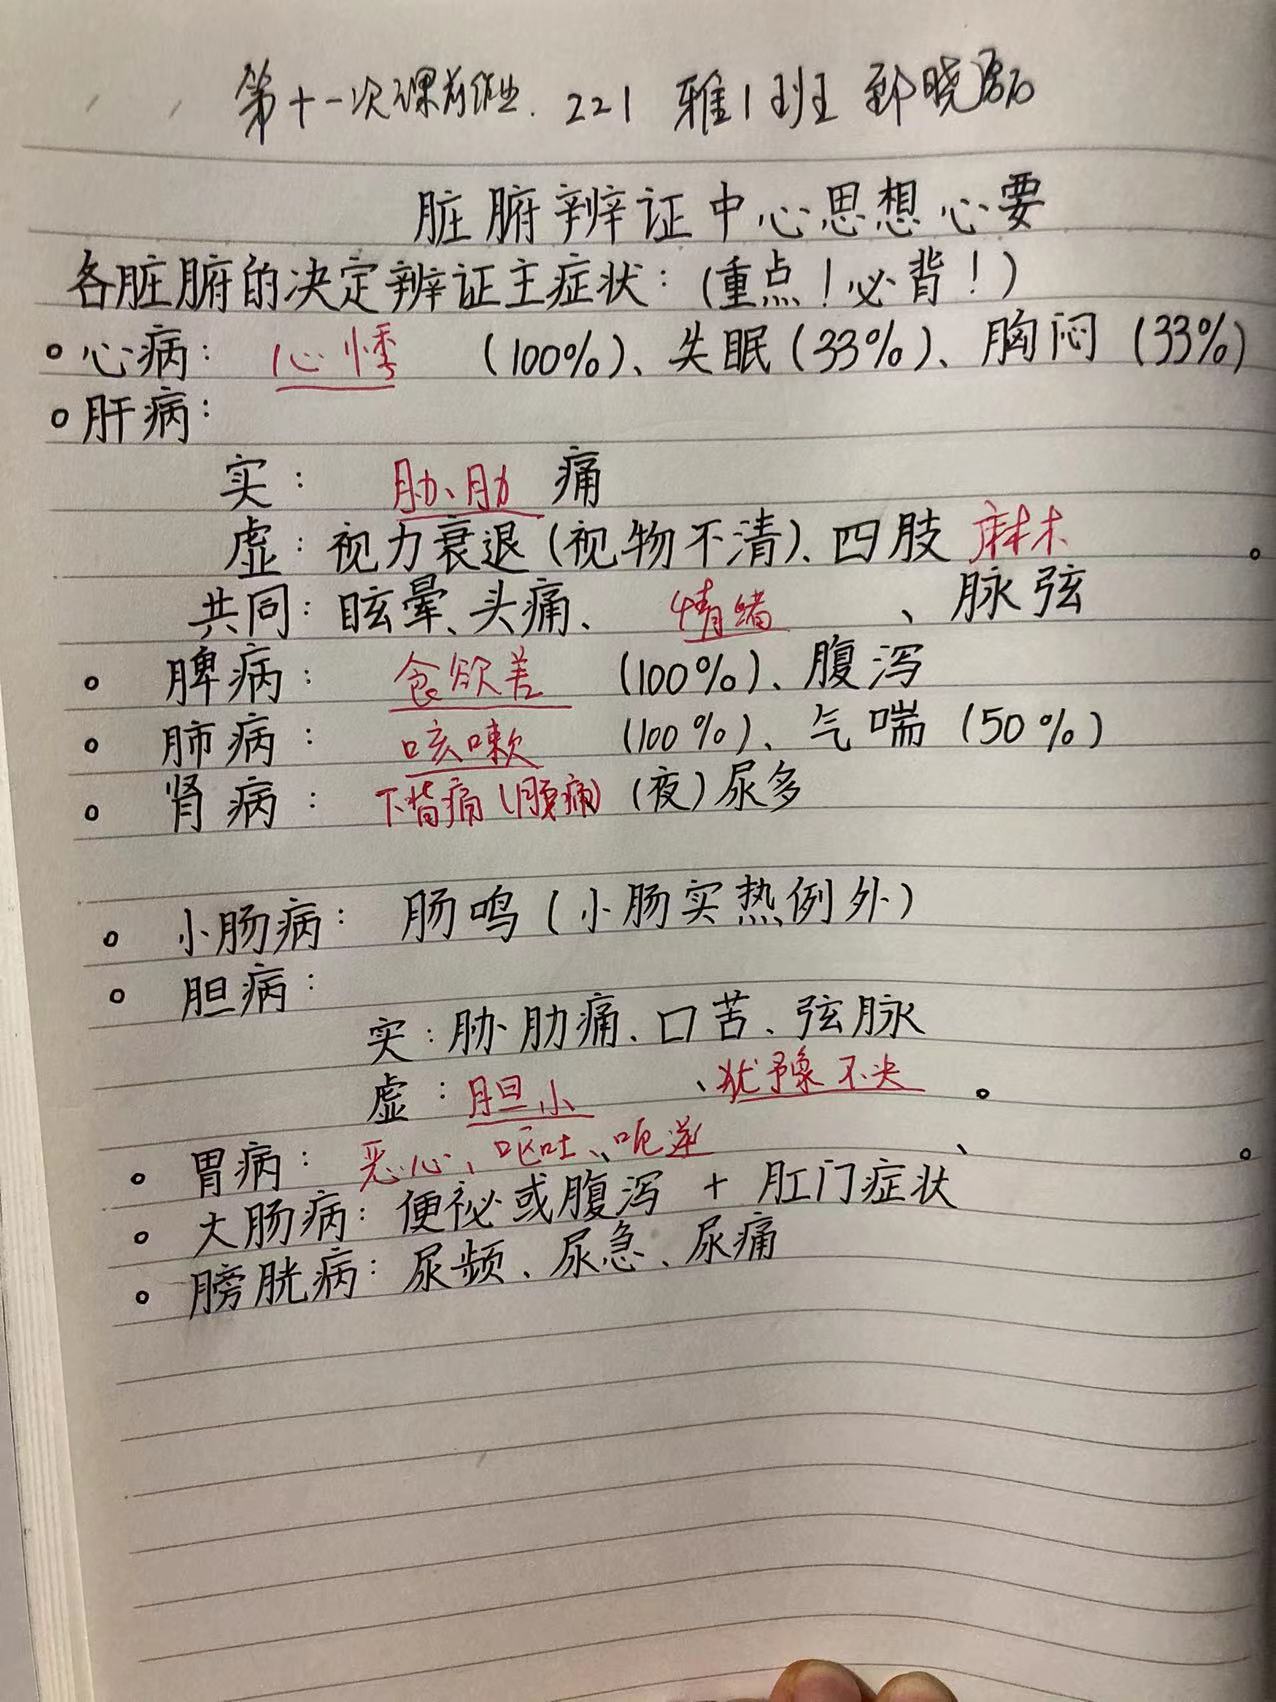 第十一次课前作业. 221 雅1班 郭晓
脏腑辨证中心思想心要
各脏腑的决定辨证主症状：(重点！必背！)
心病： 心悸 (100%)、失眠(33%)、胸闷 (33%)
肝病：
实： 胁、肋 痛
虚：视力衰退(视物不清)、四肢 麻木 。
共同：眩晕、头痛、 情绪 、脉弦
脾病： 食欲差 (100%)、腹泻
肺病： 咳嗽 (100%)、气喘 (50%)
肾病： 下背痛(腰痛) (夜)尿多
小肠病： 肠鸣(小肠实热例外)
胆病：
实：胁肋痛、口苦、弦脉
虚：胆小 、犹豫不决 。
胃病： 恶心、呕吐、呃逆 、 。
大肠病：便祕或腹泻 + 肛门症状
膀胱病：尿频、尿急、尿痛